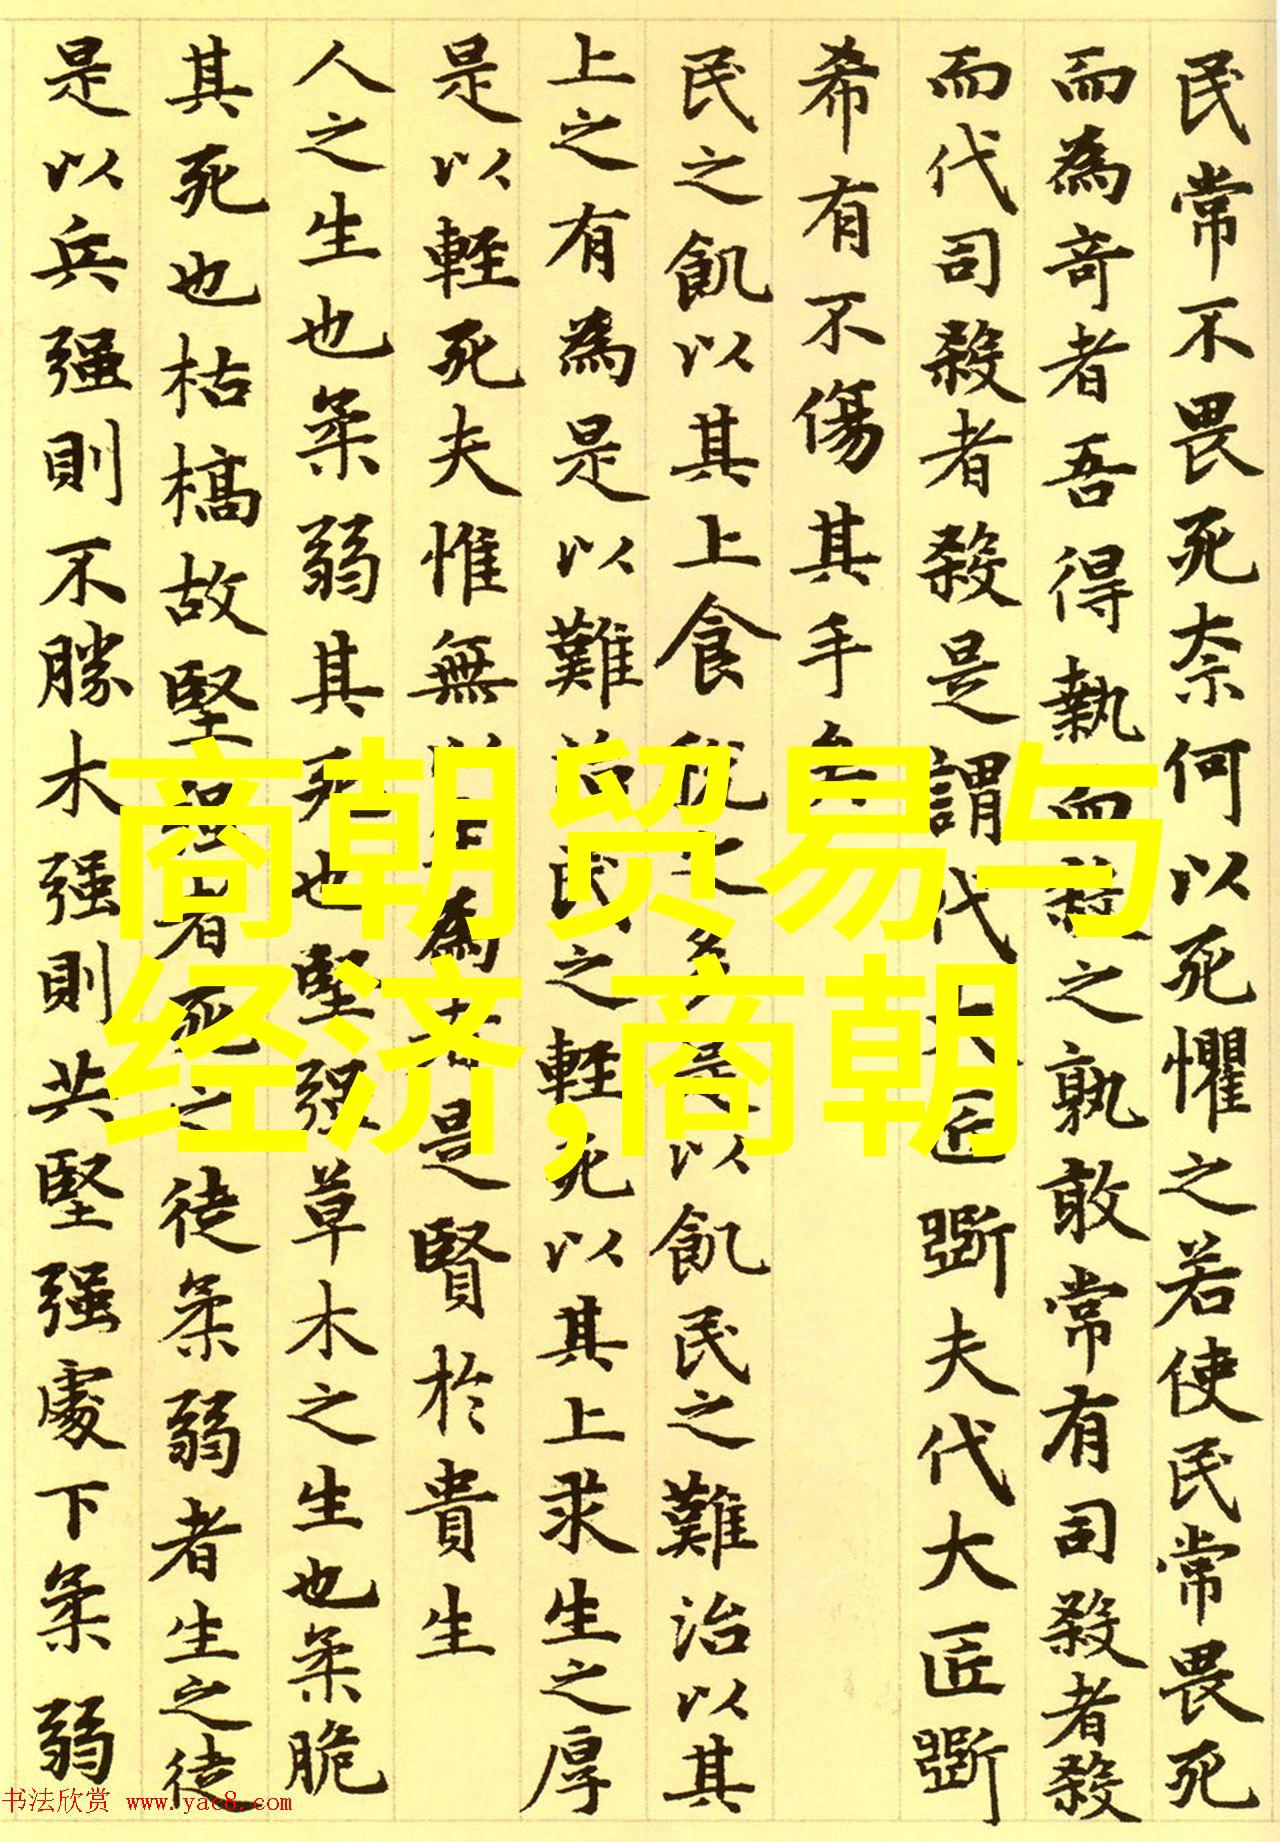 民常不畏死奈何以死懼之若使民常畏死
而為奇者吾得執而殺之孰敢常有司殺者殺
而代司殺者殺是謂代大匠斲夫代大匠斲
希有不傷其手矣
民之飢以其上食税之多是以飢民之難治以其
上之有為是以難治民之輕死以其上求生之厚
是以輕死夫惟無以生為者是賢於貴生
人之生也柔弱其死也堅强草木之生也柔脆
其死也枯槁故堅强者死之徒柔弱者生之徒
是以兵强則不勝木强則共堅强處下柔弱
商朝贸易与
经济,商朝
书法欣赏 www.yac8.com